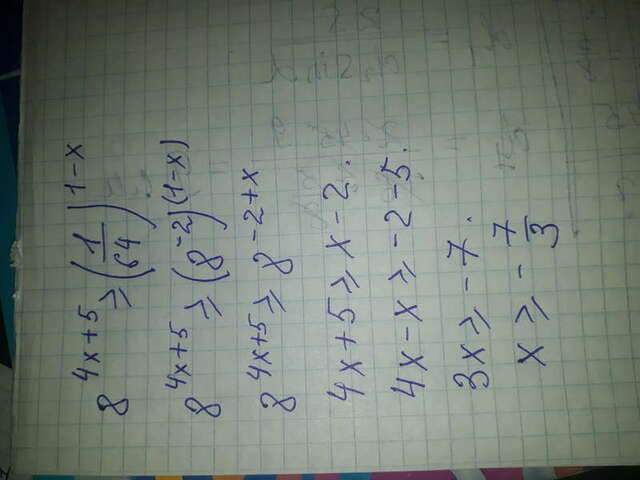 8^(4x+5) ≥ (1/64)^(1-x)
8^(4x+5) ≥ (8^(-2))^((1-x))
8^(4x+5) ≥ 8^(-2+x)
4x+5 ≥ x-2.
4x-x ≥ -2-5.
3x ≥ -7.
x ≥ -7/3